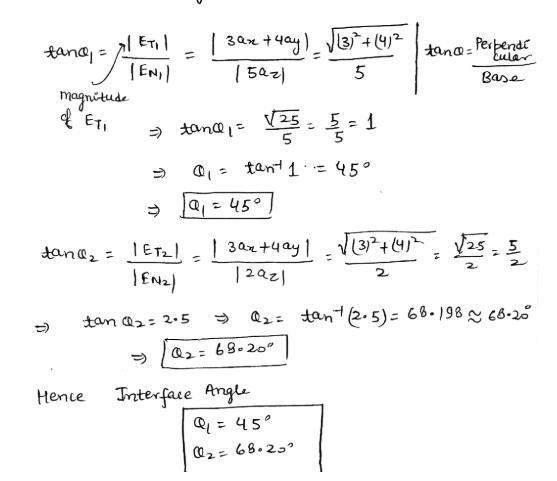 tanθ₁ = |ET₁| / |EN₁| = |3ax + 4ay| / |5az| = √((3)² + (4)²) / 5 | tanθ = Perpendicular / Base
magnitude of ET₁
⇒ tanθ₁ = √25 / 5 = 5/5 = 1
⇒ θ₁ = tan⁻¹ 1 = 45°
⇒ θ₁ = 45°
tanθ₂ = |ET₂| / |EN₂| = |3ax + 4ay| / |2az| = √((3)² + (4)²) / 2 = √25 / 2 = 5/2
⇒ tanθ₂ = 2.5 ⇒ θ₂ = tan⁻¹(2.5) = 68.198 ≈ 68.20°
⇒ θ₂ = 68.20°
Hence Interface Angle
θ₁ = 45°
θ₂ = 68.20°